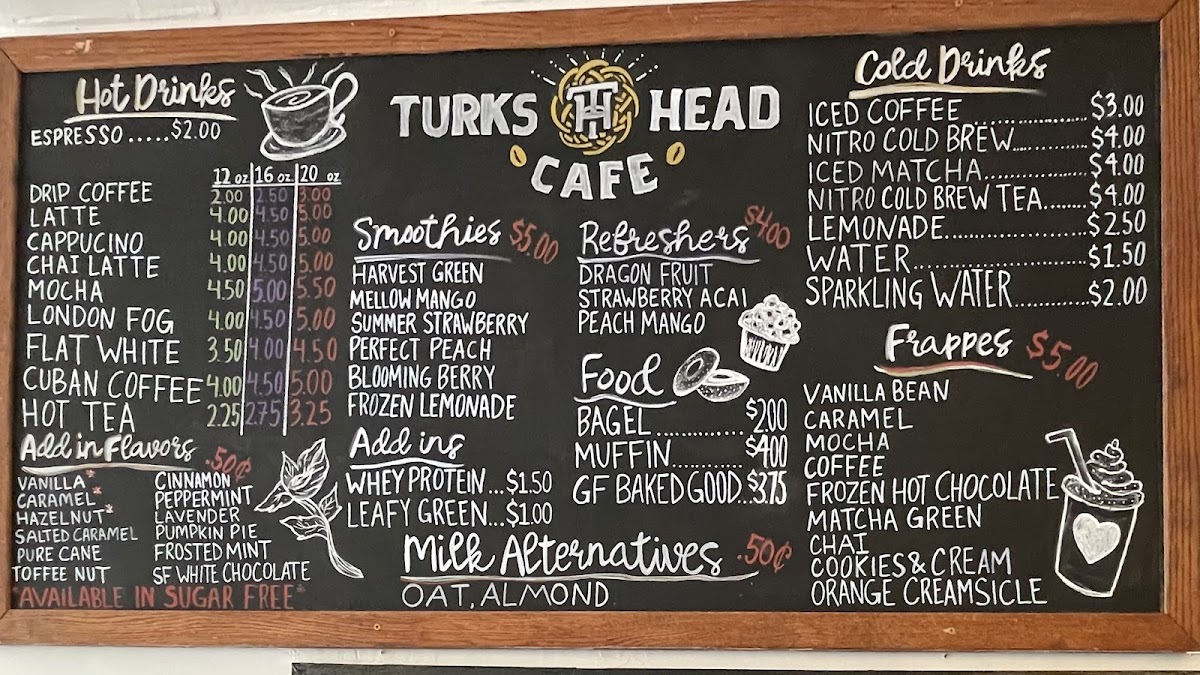 Hot Drinks
ESPRESSO.....$2.00
12 oz 16 oz 20 oz
DRIP COFFEE 2.00 2.50 3.00
LATTE 4.00 4.50 5.00
CAPPUCINO 4.00 4.50 5.00
CHAI LATTE 4.00 4.50 5.00
MOCHA 4.50 5.00 5.50
LONDON FOG 4.00 4.50 5.00
FLAT WHITE 3.50 4.00 4.50
CUBAN COFFEE 4.00 4.50 5.00
HOT TEA 2.25 2.75 3.25
Add in Flavors .50¢
VANILLA*
CARAMEL*
HAZELNUT*
SALTED CARAMEL
PURE CANE
TOFFEE NUT
CINNAMON
PEPPERMINT
LAVENDER
PUMPKIN PIE
FROSTED MINT
SF WHITE CHOCOLATE
*AVAILABLE IN SUGAR FREE*
TURKS TH HEAD
CAFE
Smoothies $5.00
HARVEST GREEN
MELLOW MANGO
SUMMER STRAWBERRY
PERFECT PEACH
BLOOMING BERRY
FROZEN LEMONADE
Add ins
WHEY PROTEIN...$1.50
LEAFY GREEN...$1.00
Refreshers $4.00
DRAGON FRUIT
STRAWBERRY ACAI
PEACH MANGO
Food
BAGEL............$2.00
MUFFIN..........$4.00
GF BAKED GOOD..$3.75
Milk Alternatives .50¢
OAT, ALMOND
Cold Drinks
ICED COFFEE....................$3.00
NITRO COLD BREW..............$4.00
ICED MATCHA...................$4.00
NITRO COLD BREW TEA........$4.00
LEMONADE........................$2.50
WATER.............................$1.50
SPARKLING WATER............$2.00
Frappes $5.00
VANILLA BEAN
CARAMEL
MOCHA
COFFEE
FROZEN HOT CHOCOLATE
MATCHA GREEN
CHAI
COOKIES & CREAM
ORANGE CREAMSICLE